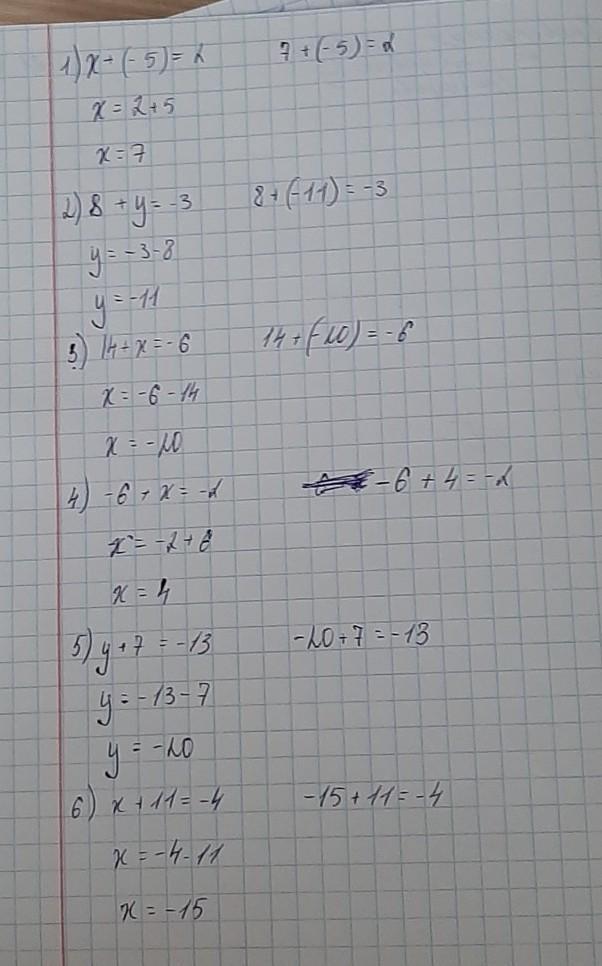 1) x + (-5) = 2 7 + (-5) = 2
x = 2 + 5
x = 7
2) 8 + y = -3 8 + (-11) = -3
y = -3 - 8
y = -11
3) 14 + x = -6 14 + (-20) = -6
x = -6 - 14
x = -20
4) -6 + x = -2 -6 + 4 = -2
x = -2 + 6
x = 4
5) y + 7 = -13 -20 + 7 = -13
y = -13 - 7
y = -20
6) x + 11 = -4 -15 + 11 = -4
x = -4 - 11
x = -15